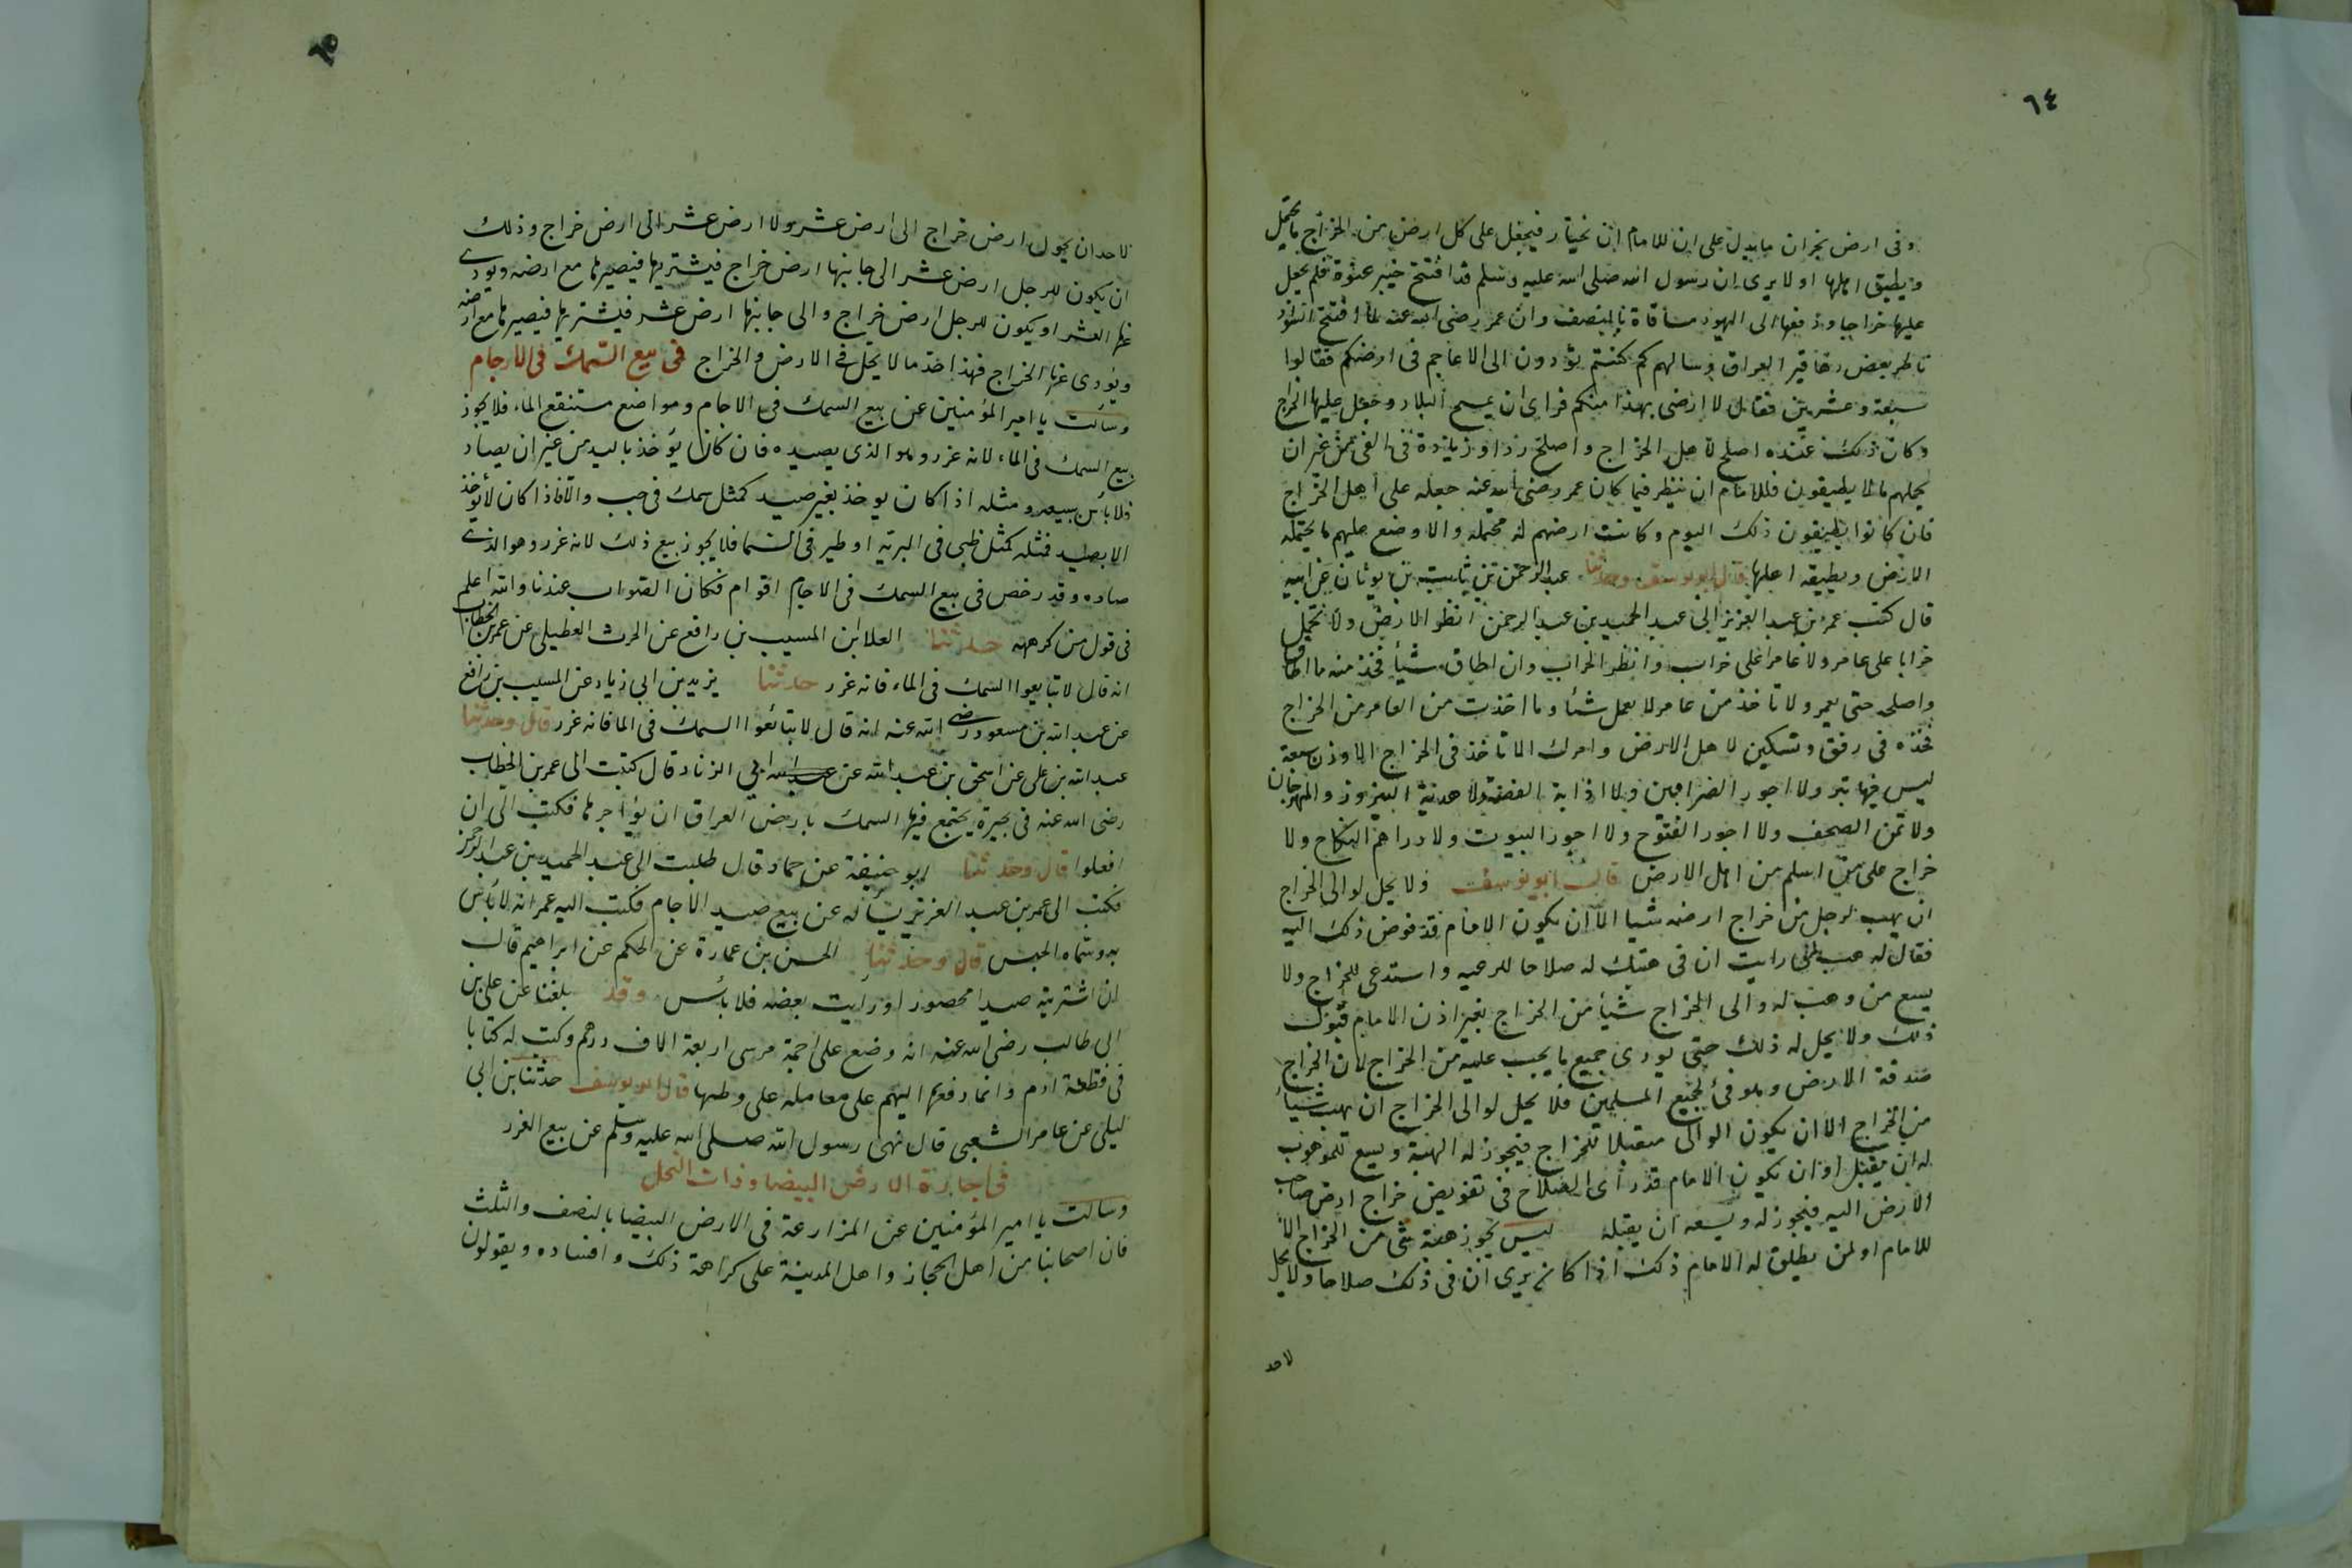 ٦٤
وفى ارض نجران ما يدل على ان للامام ان يختار فيجعل على كل ارض من الخراج ما يحتمل
ويطيق اهلها او لا يرى ان رسول الله صلى الله عليه وسلم قد افتتح خيبر عنوة فلم يجعل
عليها خراجا ودفعها الى اليهود مساقاة بالنصف وان عمر رضى الله عنه لما افتتح السواد
ناظر بعض دهاقين العراق وسالهم كم كنتم تؤدون الى الاعاجم فى ارضكم فقالوا
سبعة وعشرين فقال لا ارضى بهذا منكم فراى ان يمسح البلاد وجعل عليها الخراج
وكان ذلك عنده اصلح لاهل الخراج واصلح ردا وزيادة فى الفى من غير ان
يحملهم ما لا يطيقون فللامام ان ينظر فيما كان عمر رضى الله عنه جعله على اهل الخراج
فان كانوا يطيقون ذلك اليوم وكانت ارضهم له محتملة والا وضع عليهم ما يحتمله
الارض ويطيقه اهلها قال ابو يوسف وحدثنا عبد الرحمن بن ثابت بن ثوبان عن ابيه
قال كتب عمر بن عبد العزيز الى عبد الحميد بن عبد الرحمن انظر الارض ولا تحمل
خرابا على عامر ولا عامرا على خراب وانظر الخراب وان اطاق شيأ فخذ منه ما اطاق
واصلحه حتى يعمر ولا تاخذ من عامر لا يعمل شئا وما اخذت من العامر من الخراج
فخذه فى رفق وتسكين لاهل الارض وامرك الا تاخذ فى الخراج الا وزن سبعة
ليس فيها تبر ولا اجور الضرابين ولا اذابة الفضة ولا هدية النيروز والمهرجان
ولا ثمن الصحف ولا اجور الفتوح ولا اجور البيوت ولا دراهم النكاح ولا
خراج على من اسلم من اهل الارض قال ابو يوسف ولا يحل لوالى الخراج
ان يهب لرجل من خراج ارضه شيا الا ان يكون الامام قد فوض ذلك اليه
فقال له هب لمن رايت ان فى هبتك له صلاحا للرعيه واستدعى للخراج ولا
يسع من وهب له والى الخراج شيأ من الخراج بغير اذن الامام قبول
ذلك ولا يحل له ذلك حتى يودى جميع ما يجب عليه من الخراج لان الخراج
صدقة الارض وهو فئ لجميع المسلمين فلا يحل لوالى الخراج ان يهب شيأ
من الخراج الا ان يكون الوالى متقبلا للخراج فيجوز له الهبة ويسع للموهوب
له ان يقبل او ان يكون الامام قد رأى الصلاح فى تفويض خراج ارض صاحب
الارض اليه فيجوز له ويسعه ان يقبله ليس يجوز هبة شئ من الخراج الا
للامام او لمن يطلق له الامام ذلك اذا كان يرى ان فى ذلك صلاحا ولا يحل
لاحد
٦٥
لاحد ان يحول ارض خراج الى ارض عشر ولا ارض عشر الى ارض خراج وذلك
ان يكون للرجل ارض عشر الى جانبها ارض خراج فيشتريها فيصيرها مع ارضه ويودى
عنها العشر او يكون للرجل ارض خراج والى جانبها ارض عشر فيشتريها فيصيرها مع ارضه
ويودى عنها الخراج فهذا حد ما لا يحل فى الارض والخراج فى بيع السمك فى الارجام
وسألت يا امير المؤمنين عن بيع السمك فى الاجام ومواضع مستنقع الماء فلا يجوز
بيع السمك فى الماء لانه غرر وهو الذى يصيده فان كان يؤخذ باليد من غير ان يصاد
فلا بأس ببيعه ومثله اذا كان يوخذ بغير صيد كمثل سمك فى جب والا فاذا كان لا يوخذ
الا بصيد فمثله كمثل ظبى فى البرية او طير فى السما فلا يجوز بيع ذلك لانه غرر وهو الذى
صاده وقد رخص فى بيع السمك فى الاجام اقوام فكان الصواب عندنا والله اعلم
فى قول من كرهه حدثنا العلا ابن المسيب بن رافع عن الحرث العطيلى عن عمر بن الخطاب
انه قال لا تبايعوا السمك فى الماء فانه غرر حدثنا يزيد بن ابى زياد عن المسيب بن رافع
عن عبد الله بن مسعود رضى الله عنه انه قال لا تبائعوا السمك فى الما فانه غرر قال وحدثنا
عبد الله بن على عن اسحق بن عبد الله عن عبد الله ابى الزناد قال كتبت الى عمر بن الخطاب
رضى الله عنه فى بحيرة يجتمع فيها السمك بارض العراق ان يؤاجرها فكتب الى ان
افعلوا قال وحدثنا ابو حنيفة عن حماد قال طلبت الى عبد الحميد بن عبد الرحمن
فكتب الى عمر بن عبد العزيز يسأله عن بيع صيد الاجام فكتب اليه عمر انه لا بأس
به وسماه الحبس قال وحدثنا الحسن بن عمارة عن الحكم عن ابراهيم قال
ان اشتريته صيدا محصورا ورأيت بعضه فلا بأس وقد بلغنا عن على بن
ابى طالب رضى الله عنه انه وضع على اجمة مرسى اربعة الاف درهم وكتب له كتابا
فى قطعة ادم وانما دفعها اليهم على معامله على وطبها قال ابو يوسف حدثنا بن ابى
ليلى عن عامر الشعبى قال نهى رسول الله صلى الله عليه وسلم عن بيع الغرر
فى اجارة الارض البيضا وذات النخل
وسالت يا امير المؤمنين عن المزارعة فى الارض البيضا بالنصف والثلث
فان اصحابنا من اهل الحجاز واهل المدينة على كراهة ذلك وافساده ويقولون